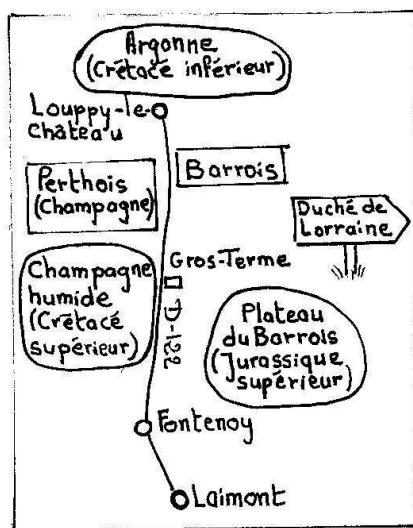 Argonne
(Crétacé inférieur)
Louppy-le-
Château
Perthois
(Champagne)
Barrois
Duché de
Lorraine
Gros-Terme
Champagne
humide
(Crétacé
supérieur)
D-122
Plateau
du Barrois
(Jurassique
supérieur)
Fontenoy
Laimont